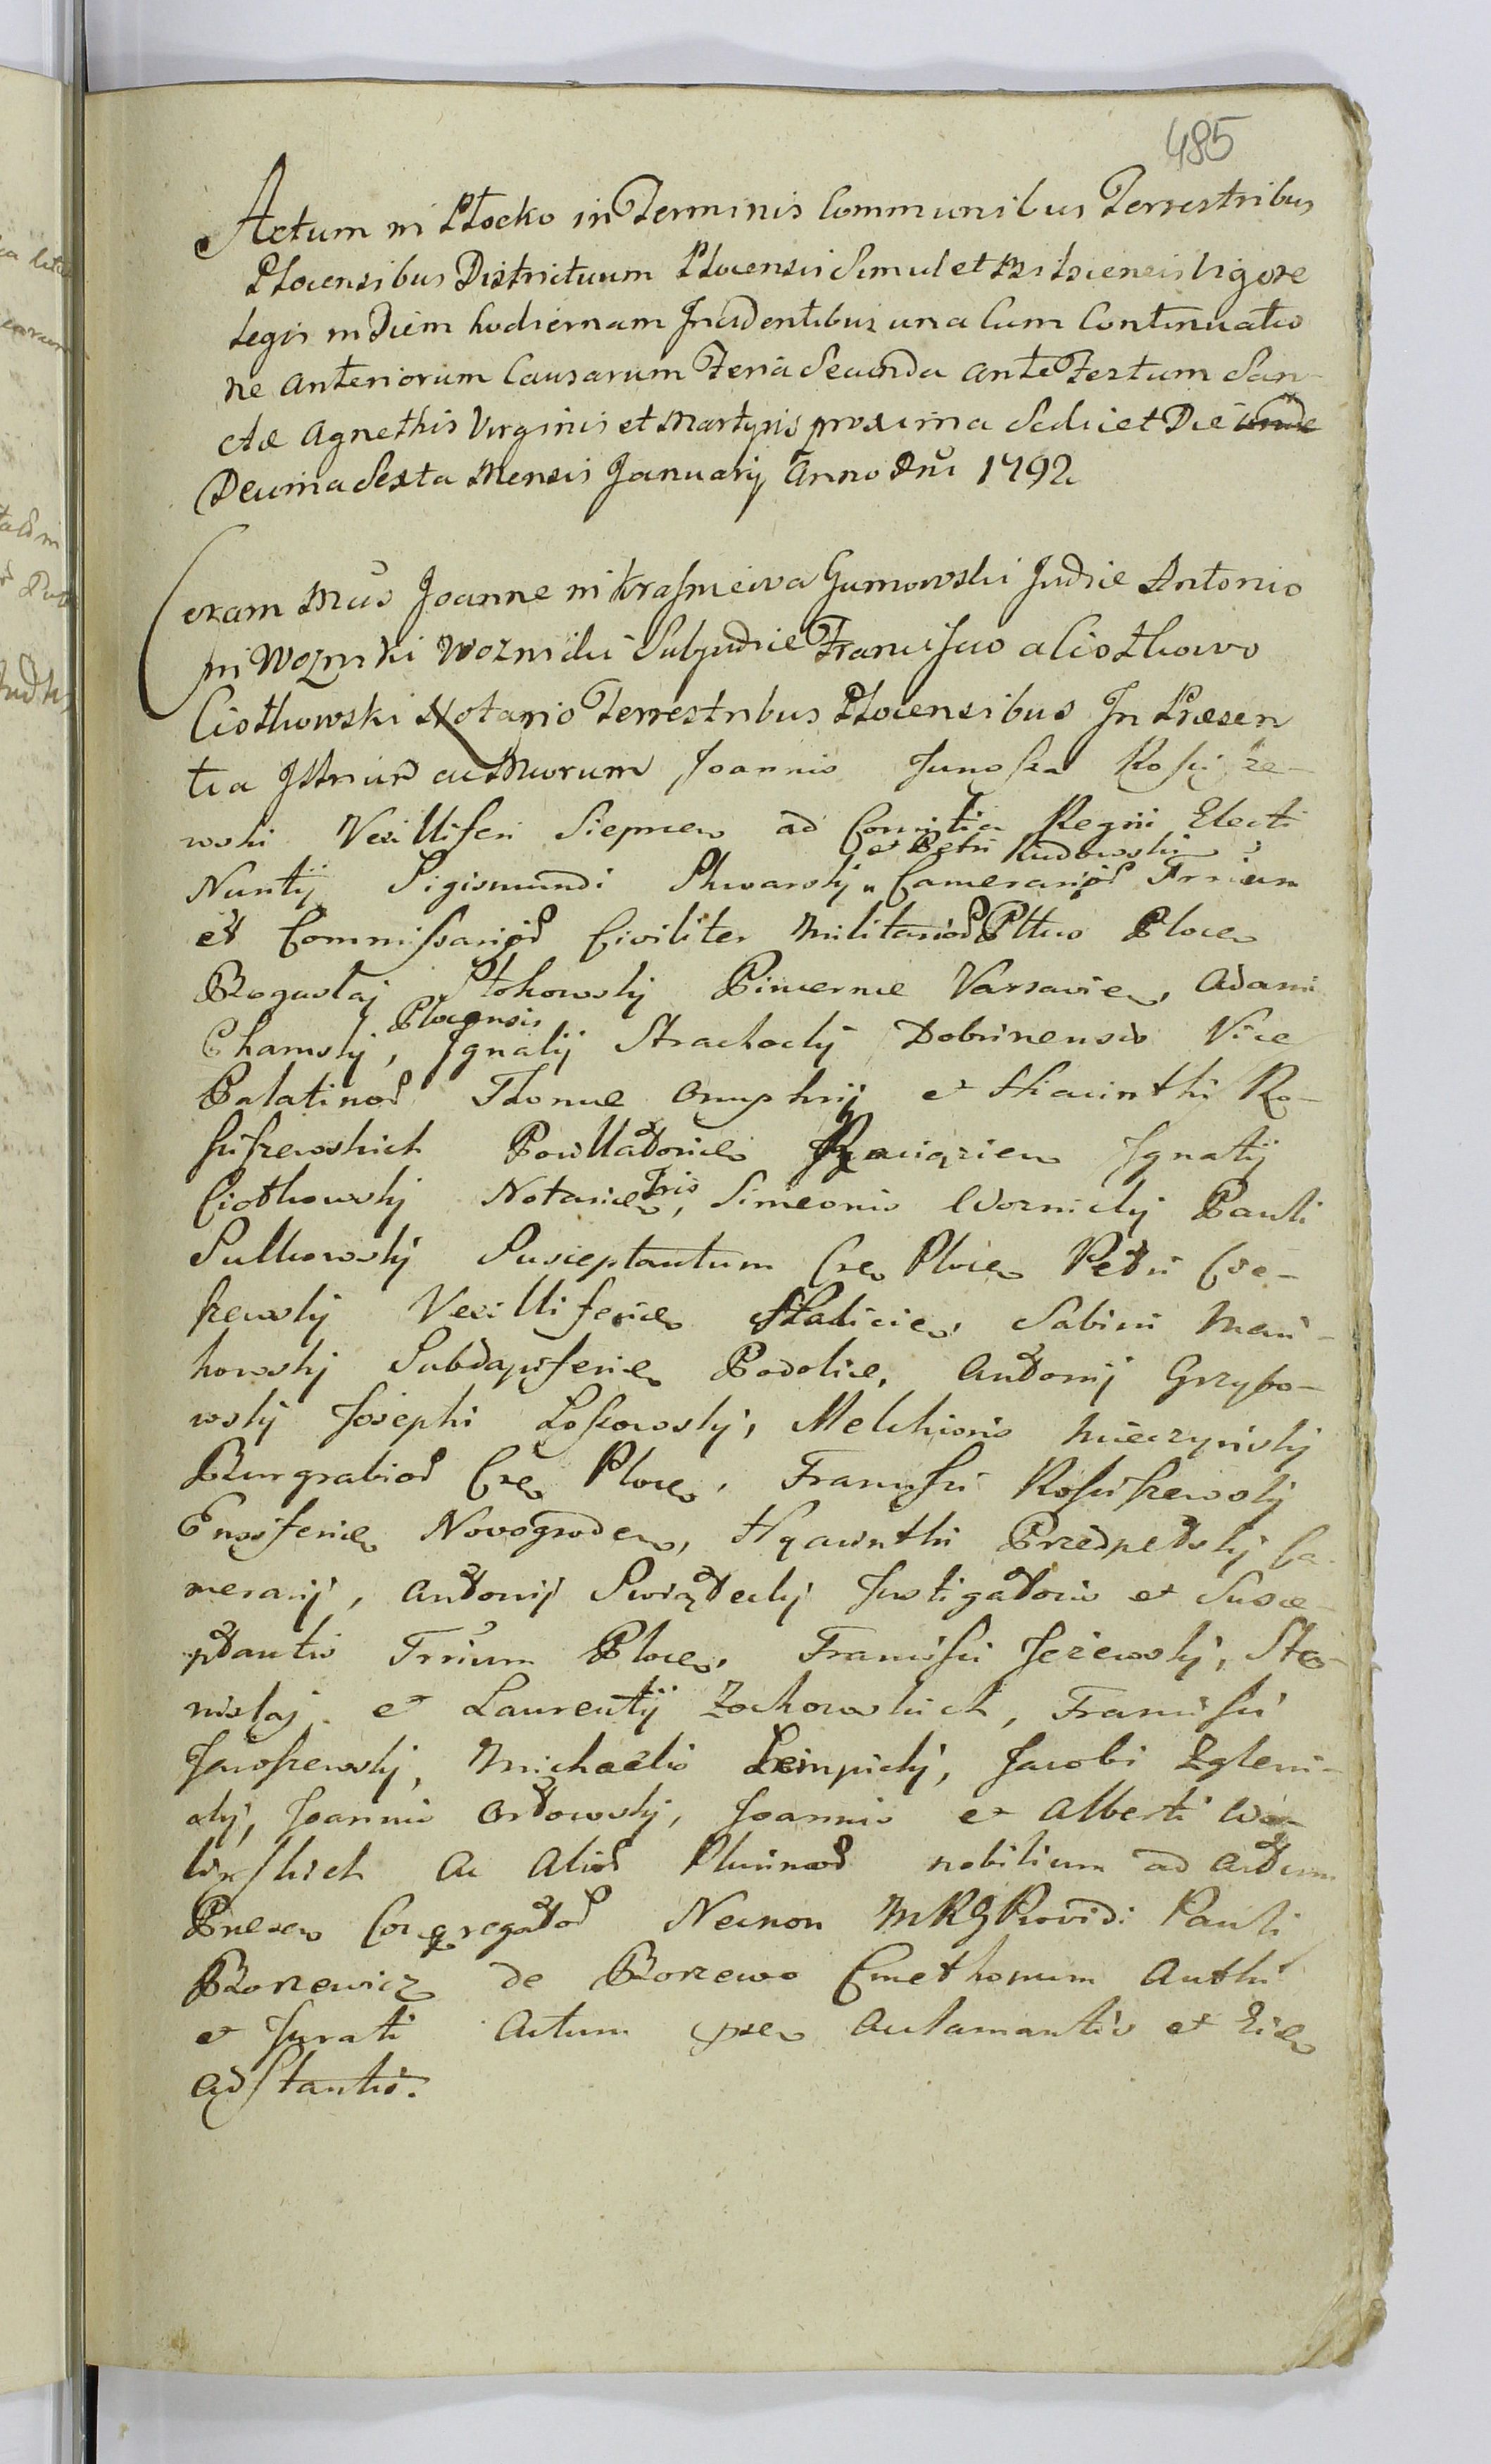 485
Actum in Płocko in Terminis Communibus Terrestribus
Plocensibus Districtuum Plocensis Simul et Bilscensis Vigore
Legis in Diem hodiernam Incidentibus una Cum Continuatio
ne Anteriorum Causarum Feria Secunda Ante Festum San-
ctæ Agnethis Virginis et Martyris proxima Scilicet Die
Decima Sexta Mensis Januarij Anno Dni 1792
Coram Mcis Joanne in Krasniewa Gumowski Judice Antonio
in Wozniki Woznicki Subjudice Francisco a Ciołkowo
Ciołkowski Notario Terrestribus Plocensibus In Præsen
tia Illrium ac Mcorum Joannis Junosza Kosci sze-
wski Vexilliferi Siepricen ad Comitia Regni Electi
et Petri Rudowski
Nuntij Sigismundi Pluvarsky Camerariod Trrium
et Commissariod Civiliter Militariod Pttus Plocen
Bogusłaj Płokowskij Pincernæ Varsavien, Adami
Plocensis
Chamskij, Ignatij Strachockij Dobrinensis Vice
Palatinod Thomæ Onuphrij et Hiacinthi Ko-
sciszewskich Pocillatoricen Raciązien Ignatij
Ciołkowskij Notaricen Tris, Simeonis Woznickij Pauli
Sulkowskij Susceptantum Cren Plocen Petri Cze-
szewskij Vexilliferien Haliciен, Sabini Man-
kowskij Subdapiferien Podoliæ, Antonij Grzybo-
wskij Josephi Łoskowskij, Melchioris Mieczynskij
Burgrabiod Cren Plocen, Francisci Kosciszewskij
Ensiferien Novogroden, Hyacinthi Przedpełskij Ca-
merarij, Antonij Swiąteckij Instigatoris et Susce-
ptantis Trrium Plocen, Francisci Jeżewskij, Sta-
nislaj et Laurentij Żochowskich, Francisci
Jaroszewskij, Michaelis Lempickij, Jacobi Zgleni-
ckij, Joannis Orłowskij, Joannis et Alberti Wo-
linskich Ac Aliod Plurimod nobilium ad Actum
Præsen Congregatod Necnon MRG Providi Pauli
Borzewicz de Borzewo Cmethonum Authi
et Jurati Actum præn Aclamantis et Eien
adstantis.